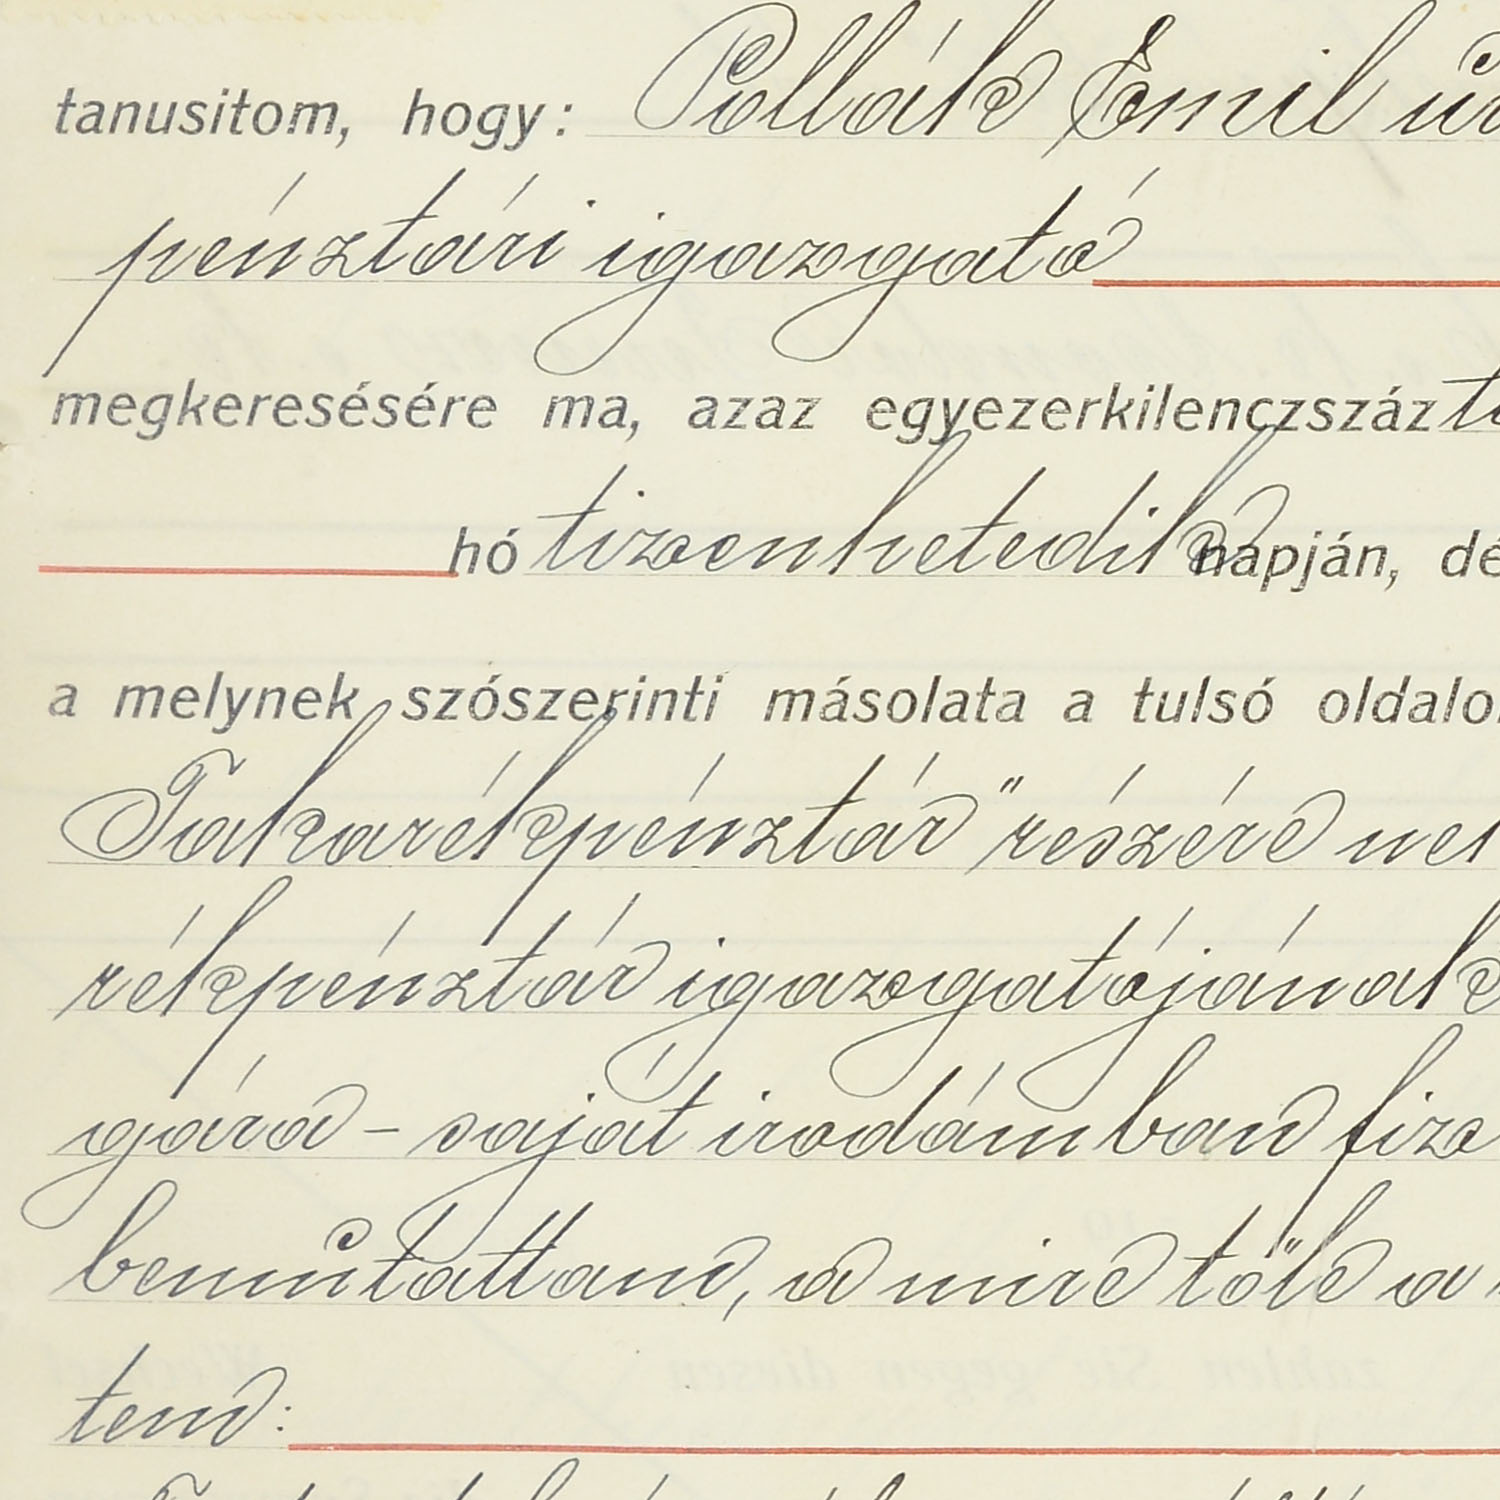 tanusitom, hogy: Pollák Emil úr
pénztári igazgató
megkeresésére ma, azaz egyezerkilenczszáz
hó tizenhetedik napján, dé
a melynek szószerinti másolata a tulsó oldalo
Takarékpénztár" részére
rékpénztár igazgatójának
gára - saját irodámban fize
bemútattam, a mire tőle a
tem: